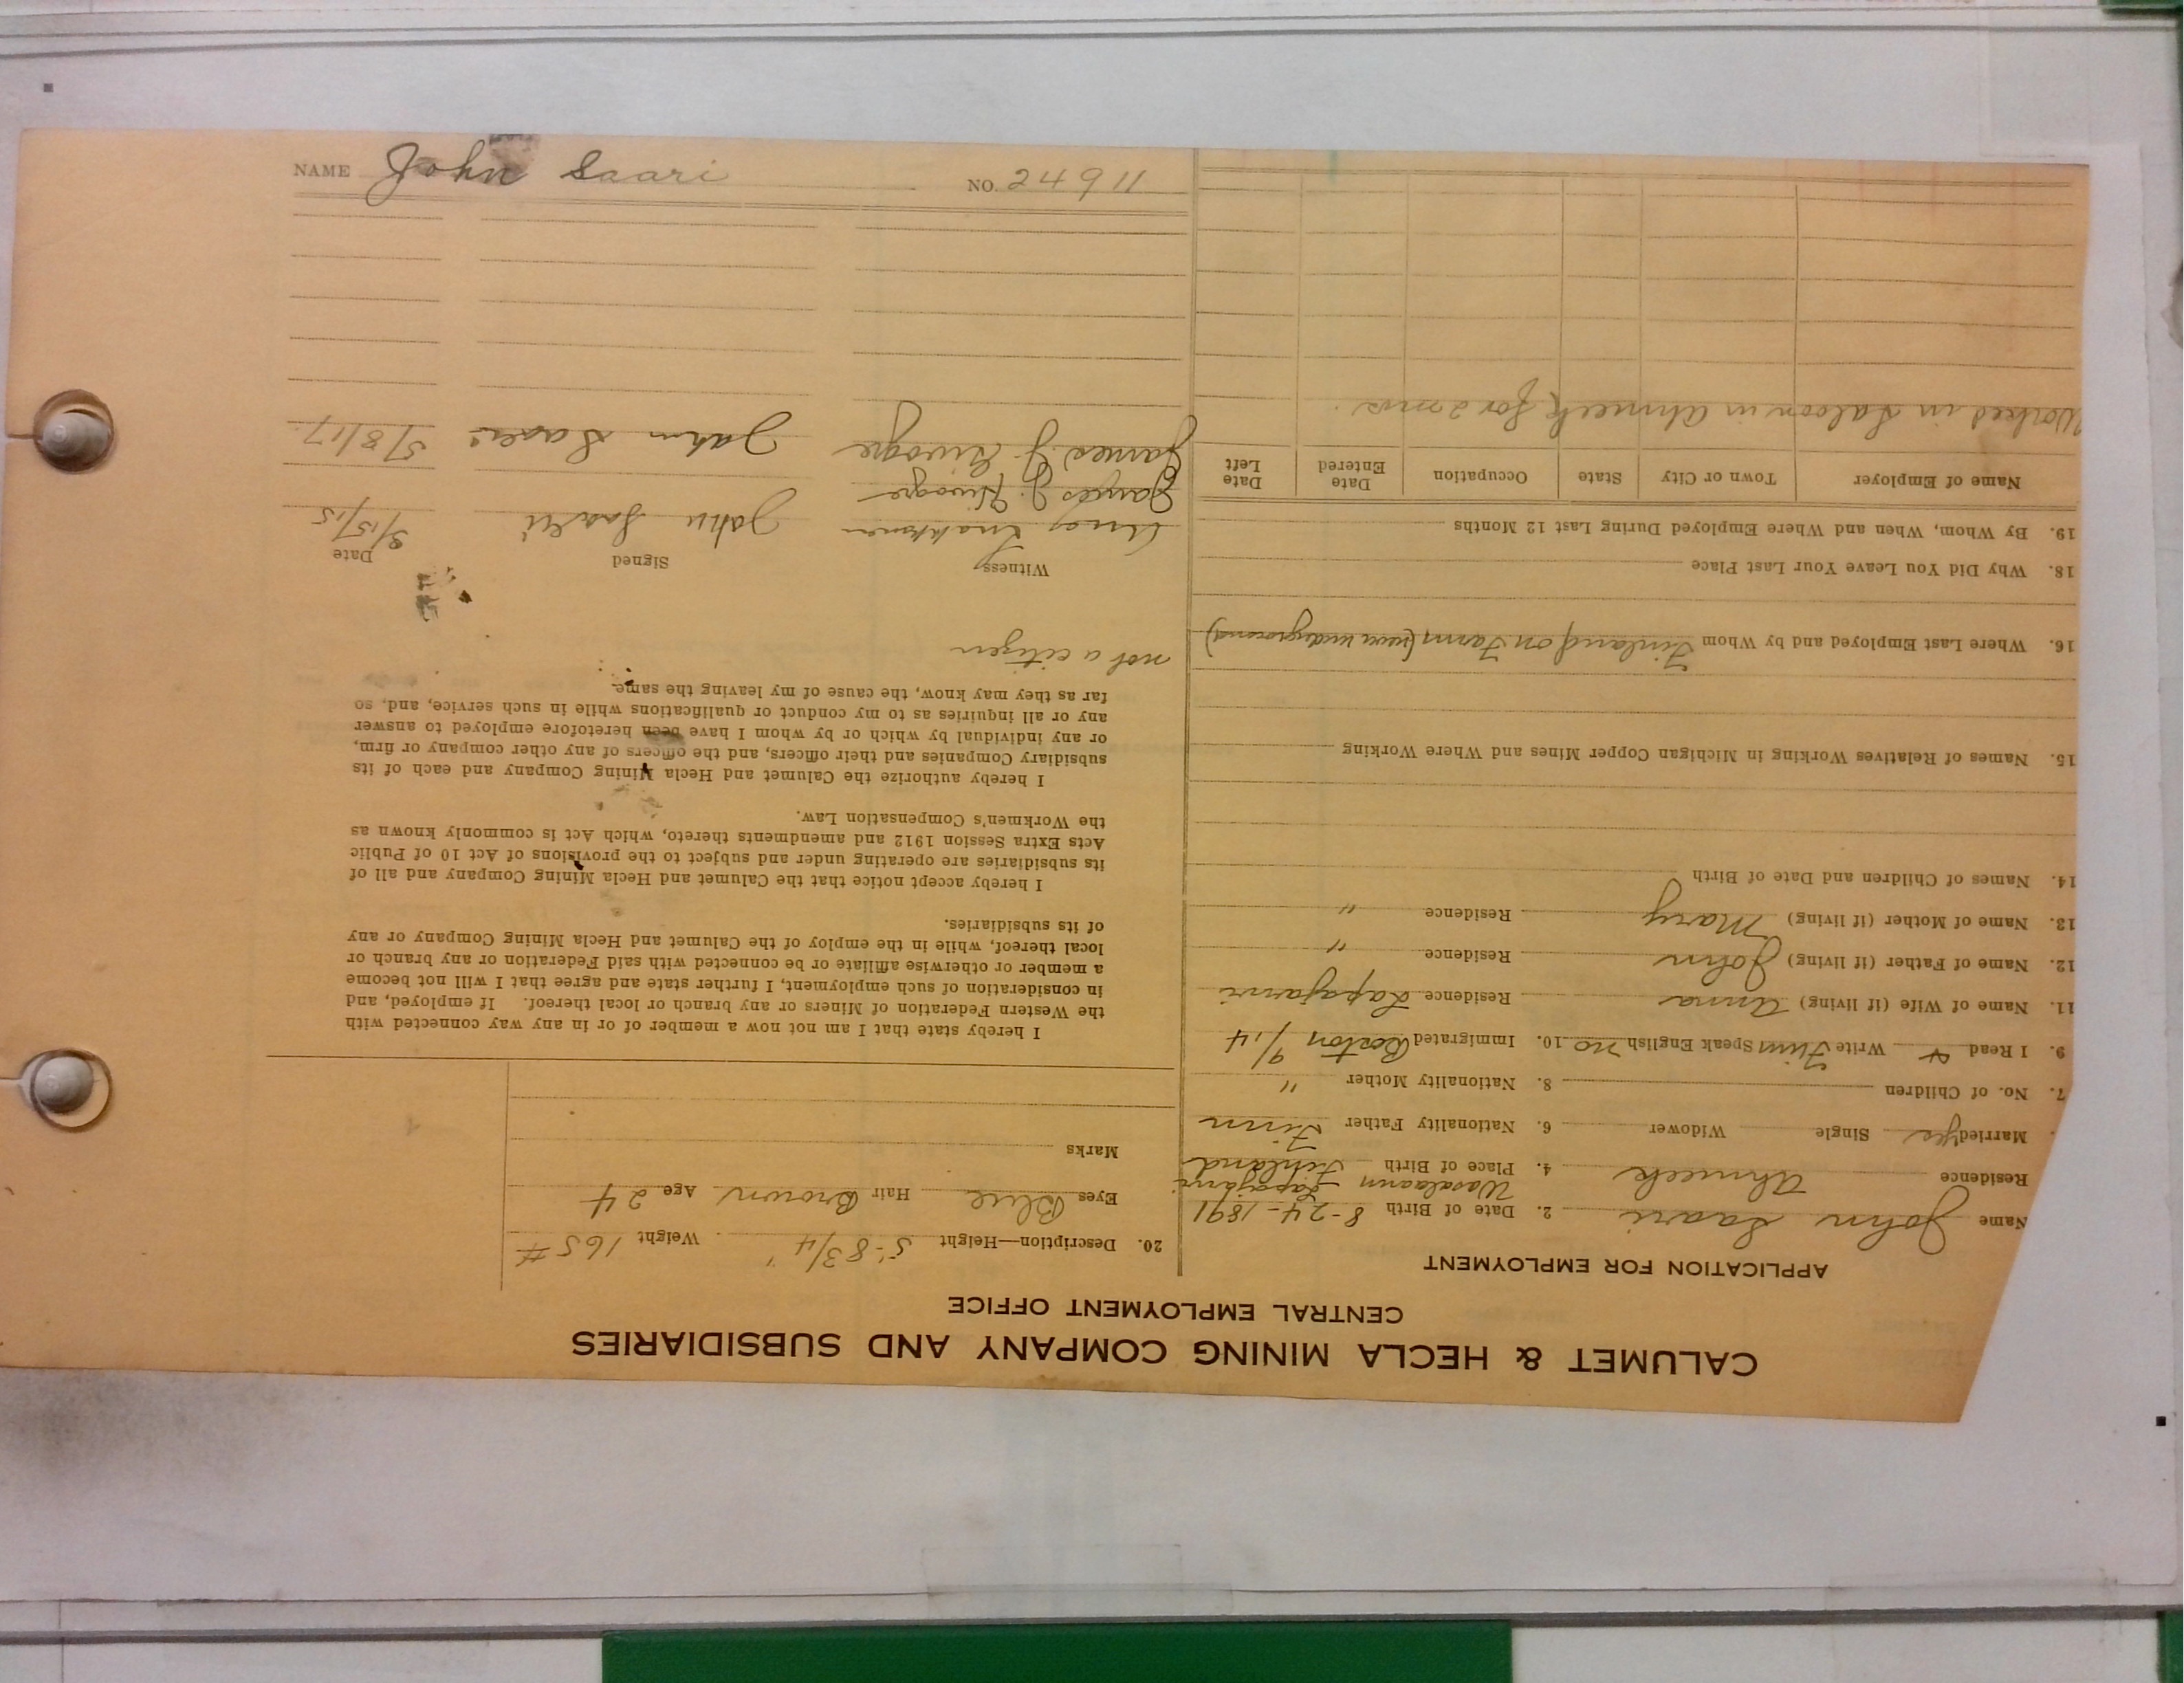 CALUMET & HECLA MINING COMPANY AND SUBSIDIARIES
CENTRAL EMPLOYMENT OFFICE
APPLICATION FOR EMPLOYMENT
Name John Saari 2. Date of Birth 8-24-1891
Residence Ahmeek 4. Place of Birth Lapajarvi Finland
Married yes Single Widower 6. Nationality Father Finn
7. No. of Children 8. Nationality Mother "
9. I Read & Write Finn Speak English no 10. Immigrated Boston 9/14
11. Name of Wife (if living) Anna Residence Lapajarvi
12. Name of Father (if living) John Residence "
13. Name of Mother (if living) Mary Residence "
14. Names of Children and Date of Birth
15. Names of Relatives Working in Michigan Copper Mines and Where Working
16. Where Last Employed and by Whom Finland on Farm (never underground)
18. Why Did You Leave Your Last Place
19. By Whom, When and Where Employed During Last 12 Months
Name of Employer Town or City State Occupation Date Entered Date Left
Worked in Saloon in Ahmeek for 2 mos.
20. Description—Height 5'-8 3/4" Weight 165 #
Eyes Blue Hair Brown Age 24
Marks
I hereby state that I am not now a member of or in any way connected with
the Western Federation of Miners or any branch or local thereof. If employed, and
in consideration of such employment, I further state and agree that I will not become
a member or otherwise affiliate or be connected with said Federation or any branch or
local thereof, while in the employ of the Calumet and Hecla Mining Company or any
of its subsidiaries.
I hereby accept notice that the Calumet and Hecla Mining Company and all of
its subsidiaries are operating under and subject to the provisions of Act 10 of Public
Acts Extra Session 1912 and amendments thereto, which Act is commonly known as
the Workmen's Compensation Law.
I hereby authorize the Calumet and Hecla Mining Company and each of its
subsidiary Companies and their officers, and the officers of any other company or firm,
or any individual by which or by whom I have been heretofore employed to answer
any or all inquiries as to my conduct or qualifications while in such service, and, so
far as they may know, the cause of my leaving the same.
not a citizen
Witness Signed Date
John Saari 3/15/15
James J.
James J. John Saari 5/8/17
NAME John Saari NO. 24911